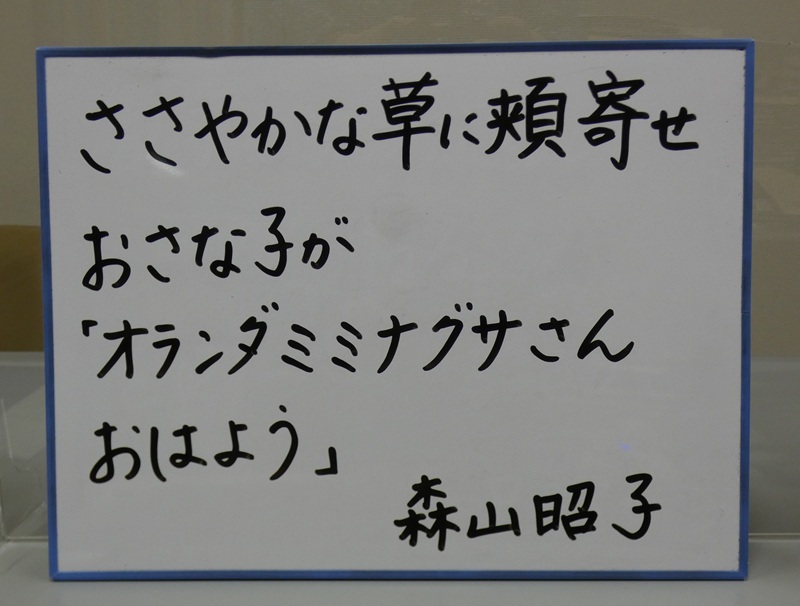 ささやかな草に頬寄せ
おさな子が
「オランダミミナグサさん
おはよう」
森山昭子